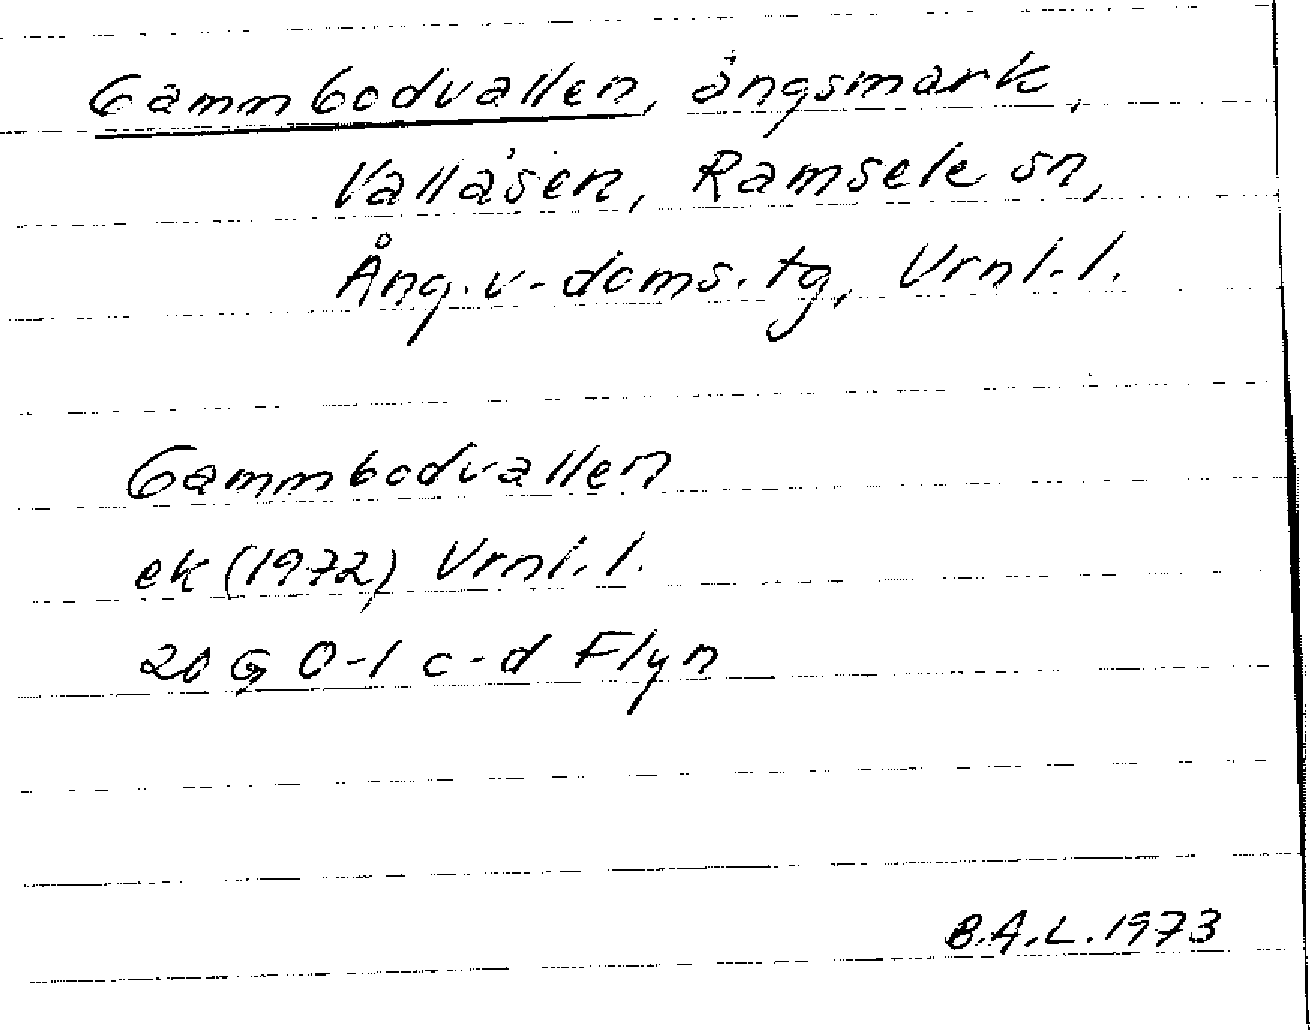 Gammbodvallen, ängsmark,
Vallåsen, Ramsele sn,
Ång. v-doms. tg, Vrnl.l.
Gammbodvallen
ek (1972) Vrnl.l.
20 G 0-1 c-d Flyn
B.A.L. 1973